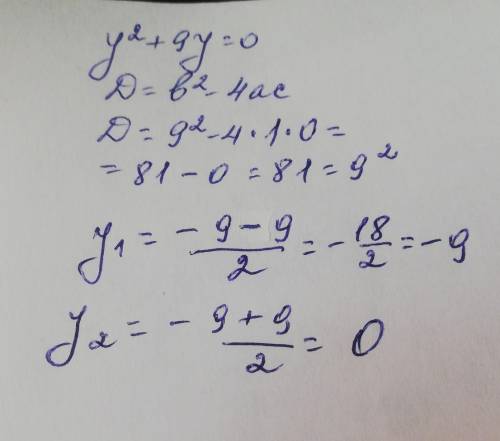 y² + 9y = 0
D = b² - 4ac
D = 9² - 4 · 1 · 0 =
= 81 - 0 = 81 = 9²
y₁ = (-9 - 9)/2 = -18/2 = -9
y₂ = (-9 + 9)/2 = 0